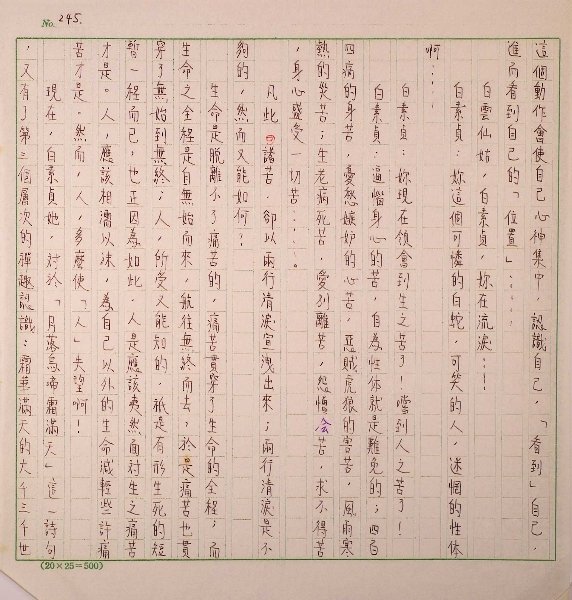 No. 245.
這個動作會使自己心神集中，認識自己，「看到」自己，
進而看到自己的「位置」……。
白雲仙姑，白素貞，妳在流淚…！
白素貞，妳這個可憐的白蛇，可笑的人，迷惘的性体
啊…：
白素貞：妳現在領會到生之苦了！嚐到人之苦了！
白素貞：逼惱身心的苦，自為性体就是難免的；四百
四病的身苦，憂愁嫉妒的心苦，惡賊虎狼的害苦，風雨寒
熱的災苦；生老病死苦，愛別離苦，怨憎會苦，求不得苦
，身心盛受一切苦……。
凡此諸苦，卻以兩行清淚宣洩出來；兩行清淚是不
夠的，然而又能如何？
生命是脫離不了痛苦的，痛苦貫穿了生命的全程；而
生命之全程是自無始而來，航往無終而去，於是痛苦也貫
穿了無始到無終；人，所受又能知的，祇是有形生死的短
暫一程而已，也正因為如此，人是應該夷然面對生之痛苦
才是。人，應該相濡以沫，為自己以外的生命減輕些許痛
苦才是。然而，人，多麼使「人」失望啊！
現在，白素貞她，對於「月落烏啼霜滿天」這一詩句
，又有了第三個層次的禪趣認識：霜華滿天的大千三千世
(20×25=500)